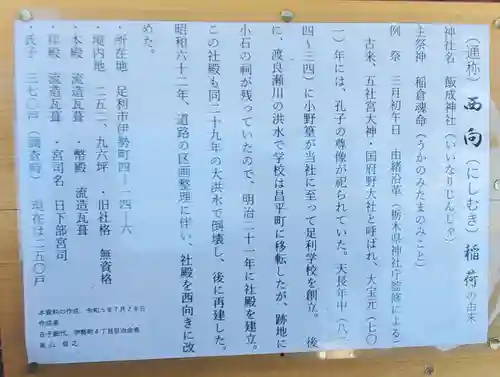 (通称) 西向(にしむき)稲荷の由来
神社名 飯成神社(いいなりじんじゃ)
主祭神 稲倉魂命(うかのみたまのみこと)
例 祭 三月初午日 由緒沿革(栃木県神社庁監修による)
古来、五社宮大神・国府野大社と呼ばれ、大宝元(七〇
一)年には、孔子の尊像が祀られていた。天長年中(八二
四~三四)に小野篁が当社に至って足利学校を創立。 後
に、渡良瀬川の洪水で学校は昌平町に移転したが、跡地に
小石の祠が残っていたので、明治二十一年に社殿を建立。
この社殿も同二十九年の大洪水で倒壊し、後に再建した。
昭和六十二年、道路の区画整理に伴い、社殿を西向きに改
めた。
・所在地 足利市伊勢町四-一四-六
・境内地 二五二、九六坪 ・旧社格 無資格
・本殿 流造瓦葺 ・幣殿 流造瓦葺
・拝殿 流造瓦葺 ・宮司名 日下部宮司
・氏子 三七〇戸(調査時) 現在は二五〇戸
本資料の作成、令和5年7月29日
作成者
氏子総代、伊勢町4丁目自治会長